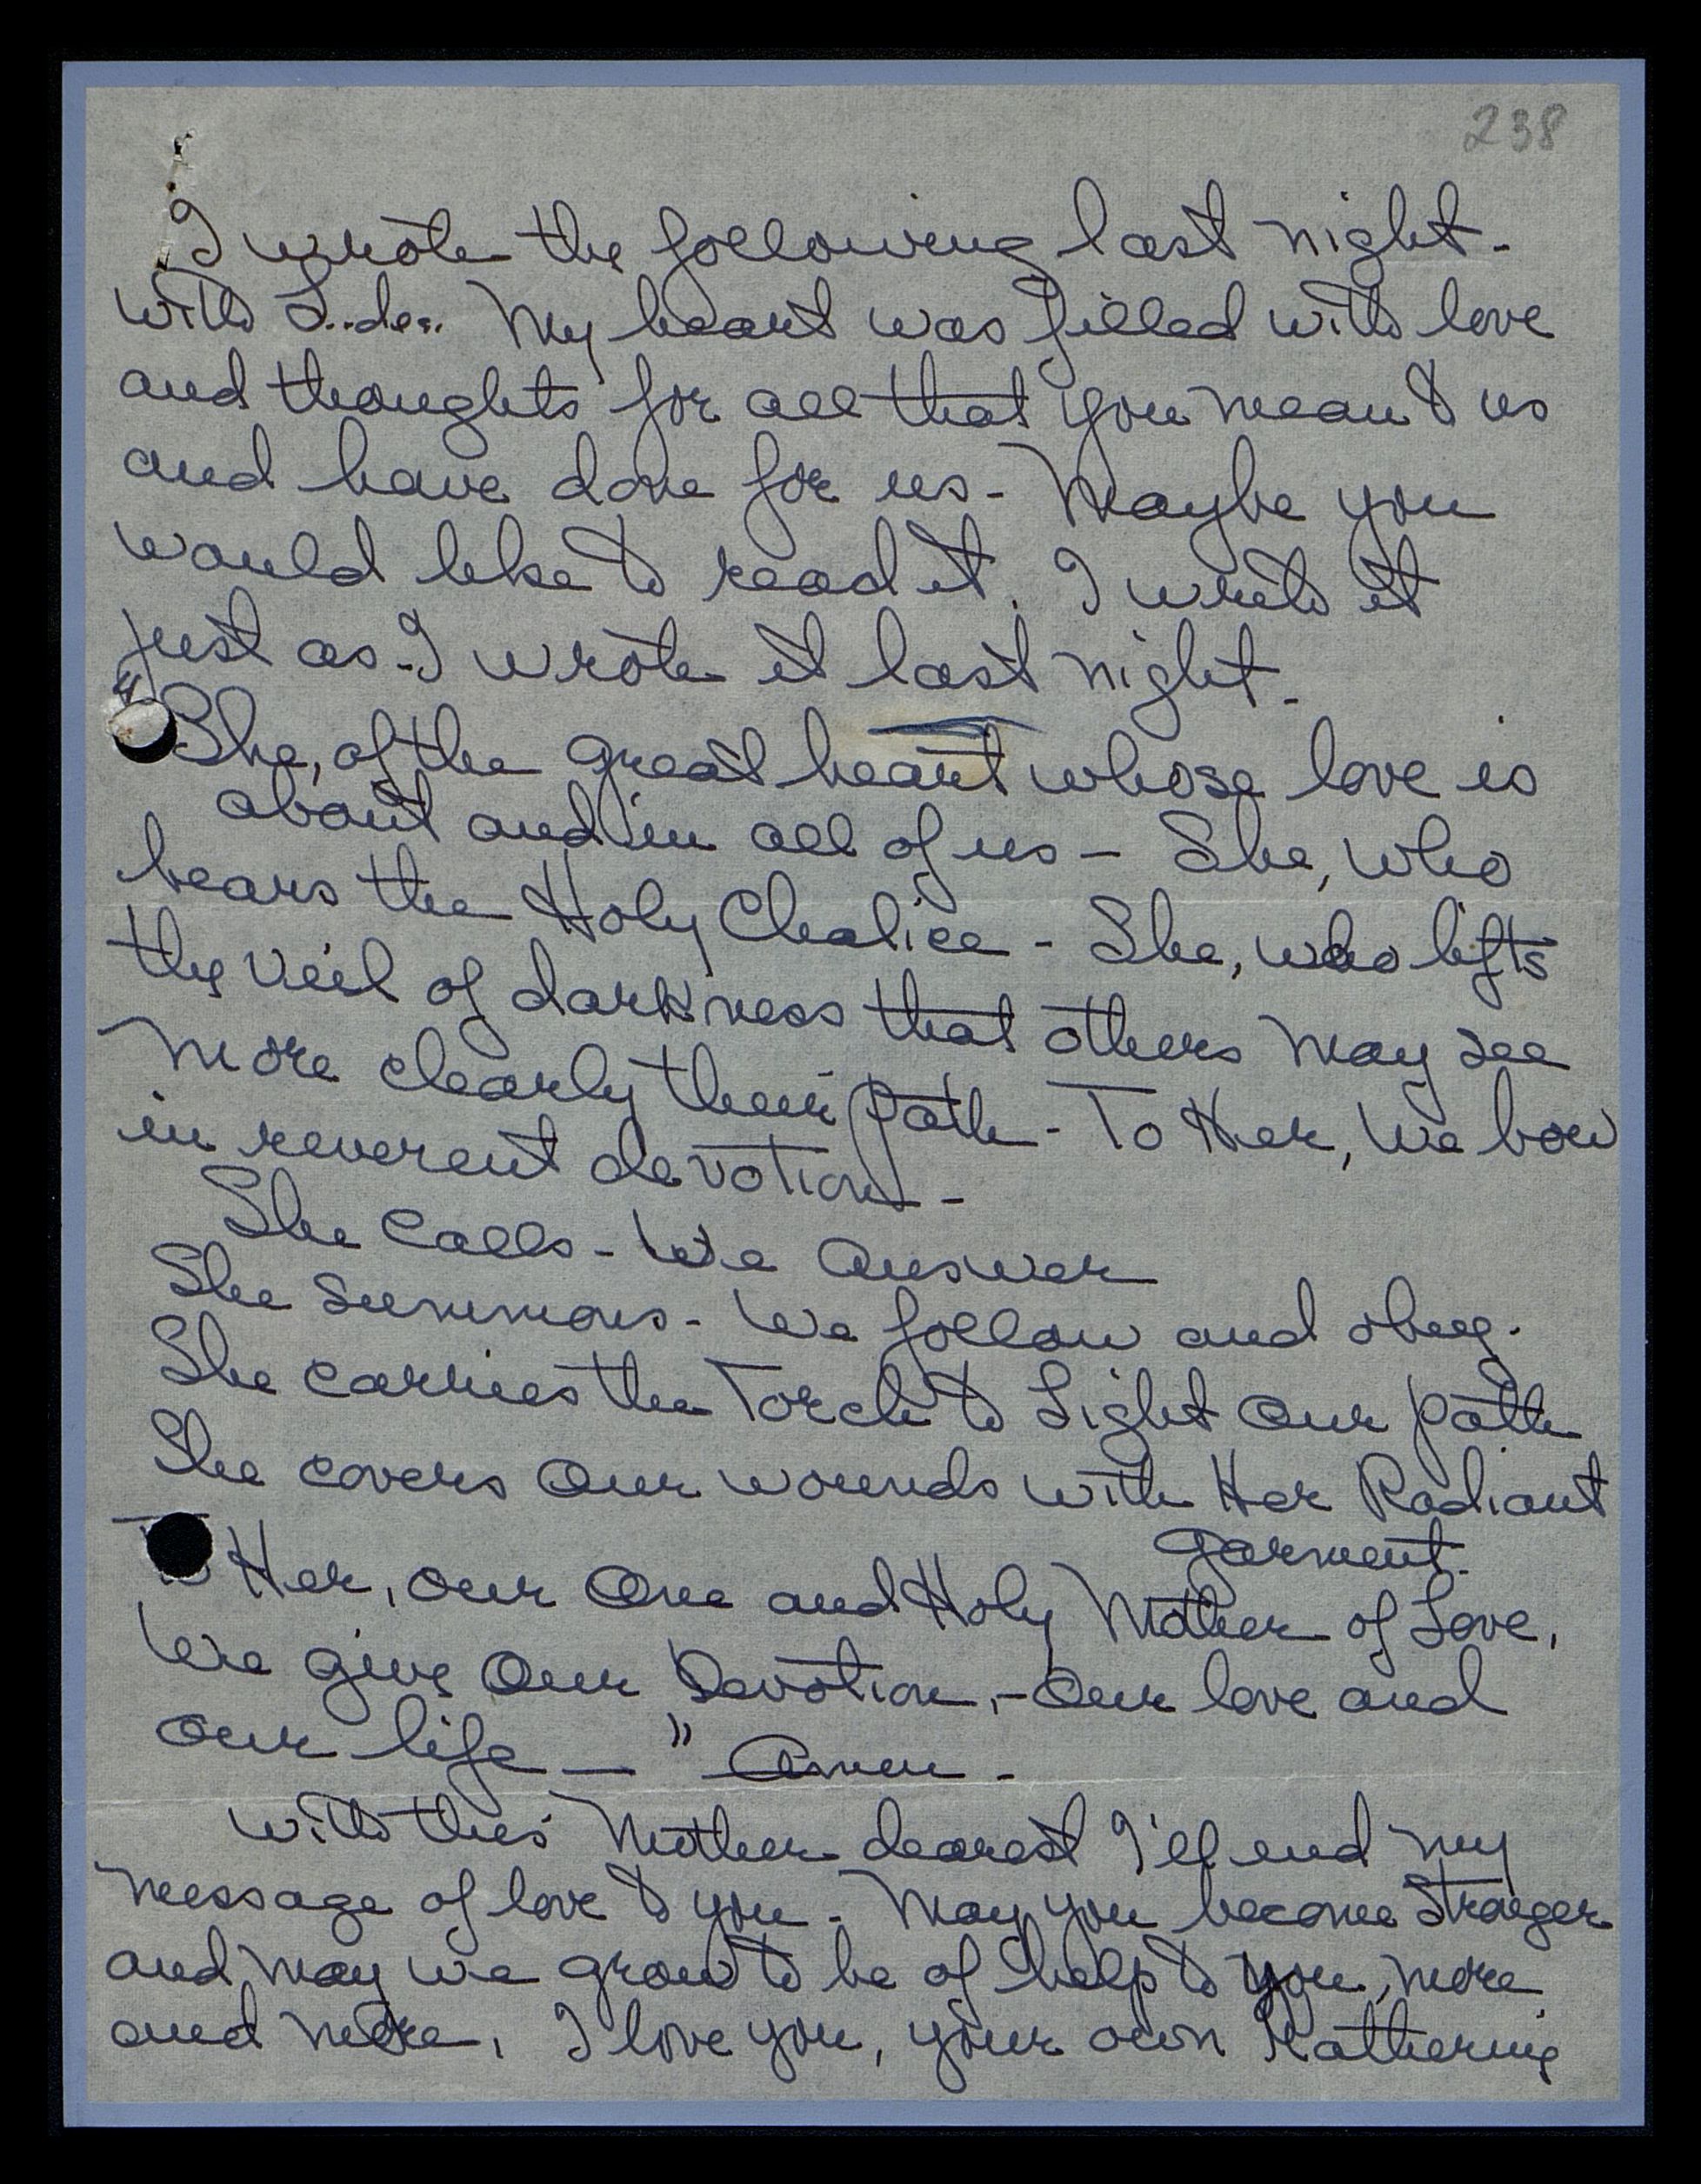 238
I wrote the following last night -
with L..de.. My heart was filled with love
and thoughts for all that you mean to us
and have done for us - Maybe you
would like to read it. I write it
just as I wrote it last night -
"She, of the great heart whose love is
about and in all of us - She, who
bears the Holy Chalice - She, who lifts
the veil of darkness that others may see
more clearly their path - To Her, We bow
in reverent devotion -
She calls - We answer
She summons - We follow and obey.
She carries the Torch to Light our path
She covers our wounds with Her Radiant
garment.
To Her, our One and Holy Mother of Love,
We give Our Devotion, - Our love and
our life — " Amen -
With this Mother dearest I'll end my
message of love to you - May you become stronger
and may we grow to be of help to you, more
and more. I love you, your own Katherine